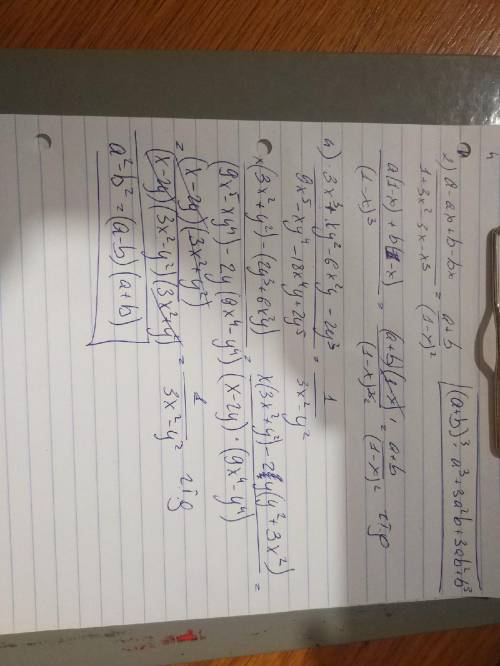 4
g) a-ax+b-bx / 1+3x²-3x-x³ = a+b / (1-x)²
(a+b)³: a³+3a²b+3ab²+b³
a(1-x)+b(1-x) / (1-x)³ = (a+b)(1-x) / (1-x)³ = a+b / (1-x)²
h) 3x³+xy²-6x²y-2y³ / 9x⁵-xy⁴-18x⁴y+2y⁵ = 1 / 3x²-y²
x(3x²+y²)-(2y³+6x²y) / (9x⁵-xy⁴)-2y(9x⁴-y⁴) = x(3x²+y²)-2y(y²+3x²) / (x-2y)·(9x⁴-y⁴) =
= (x-2y)(3x²+y²) / (x-2y)(3x²-y²)(3x²+y²) = 1 / 3x²-y²
a²-b²=(a-b)(a+b)